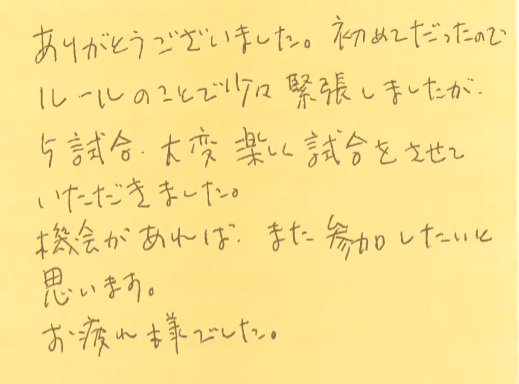 ありがとうございました。初めてだったので
ルールのことで少々緊張しましたが、
5試合、大変楽しく試合をさせて
いただきました。
機会があれば、また参加したいと
思います。
お疲れ様でした。